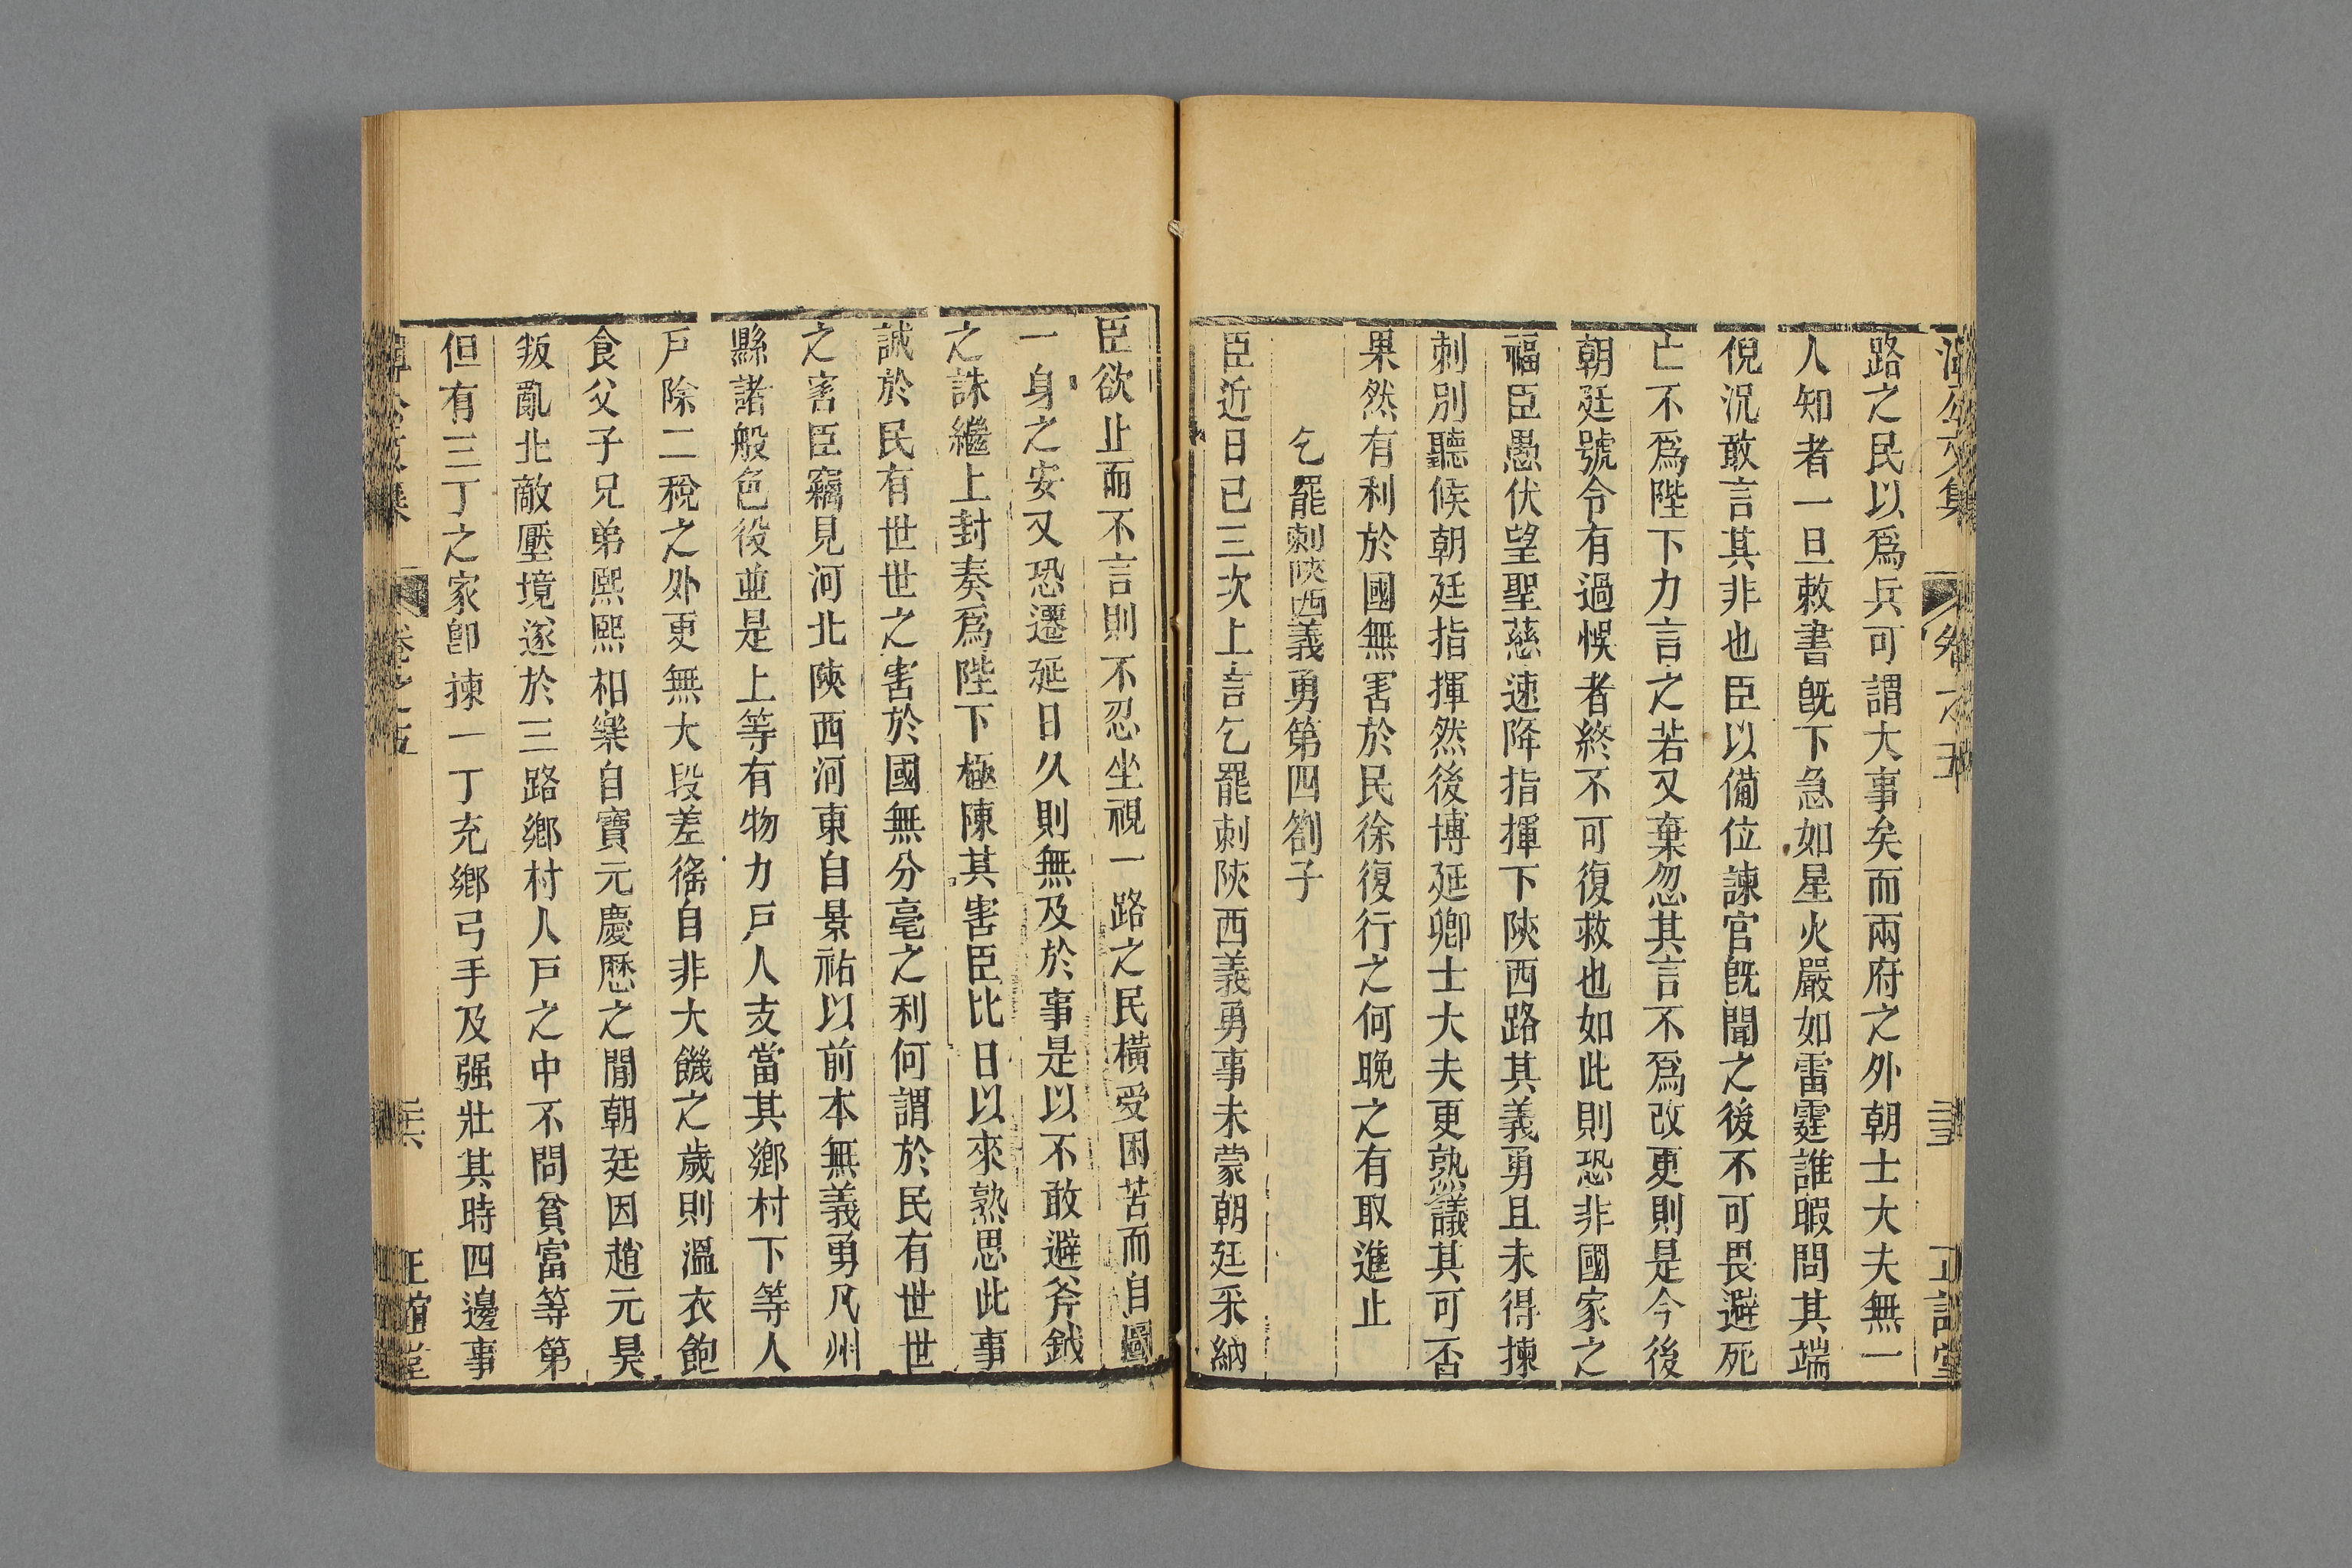 溫公文集 卷之五 正誼堂
路之民以爲兵可謂大事矣而兩府之外朝士大夫無一
人知者一旦敕書旣下急如星火嚴如雷霆誰暇問其端
倪況敢言其非也臣以備位諫官旣聞之後不可畏避死
亡不爲陛下力言之若又棄忽其言不爲改更則是今後
朝廷號令有過悞者終不可復救也如此則恐非國家之
福臣愚伏望聖慈速降指揮下陝西路其義勇且未得揀
刺別聽候朝廷指揮然後博延卿士大夫更熟議其可否
果然有利於國無害於民徐復行之何晚之有取進止
乞罷刺陝西義勇第四劄子
臣近日已三次上言乞罷刺陝西義勇事未蒙朝廷采納
臣欲止而不言則不忍坐視一路之民橫受困苦而自圖
一身之安又恐遷延日久則無及於事是以不敢避斧鉞
之誅繼上封奏爲陛下極陳其害臣比日以來熟思此事
誠於民有世世之害於國無分毫之利何謂於民有世世
之害臣竊見河北陝西河東自景祐以前本無義勇凡州
縣諸般色役並是上等有物力戶人支當其鄉村下等人
戶除二稅之外更無大段差徭自非大饑之歲則溫衣飽
食父子兄弟熙熙相樂自寶元慶歷之閒朝廷因趙元昊
叛亂北敵壓境遂於三路鄉村人戶之中不問貧富等第
但有三丁之家卽揀一丁充鄉弓手及强壯其時四邊事
卷之五 正誼堂